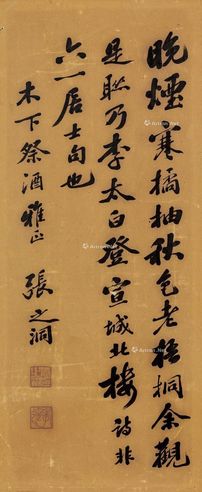 晚煙寒橘柚秋色老梧桐余觀
是聯乃李太白登宣城北樓詩非
六一居士句也
木下祭酒雅正
張之洞